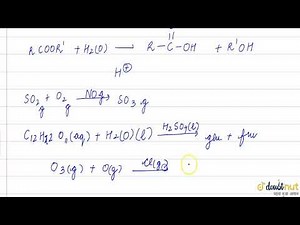 O
RCOOR' + H2(O) → R-C-OH + R'OH
H⊕
SO2 g + O2 g NOg → SO3 g
C12H22 O11(aq) + H2O(l) H2SO4(l) → glu + fru
O3(g) + O(g) Cl(g) →
doubtnut